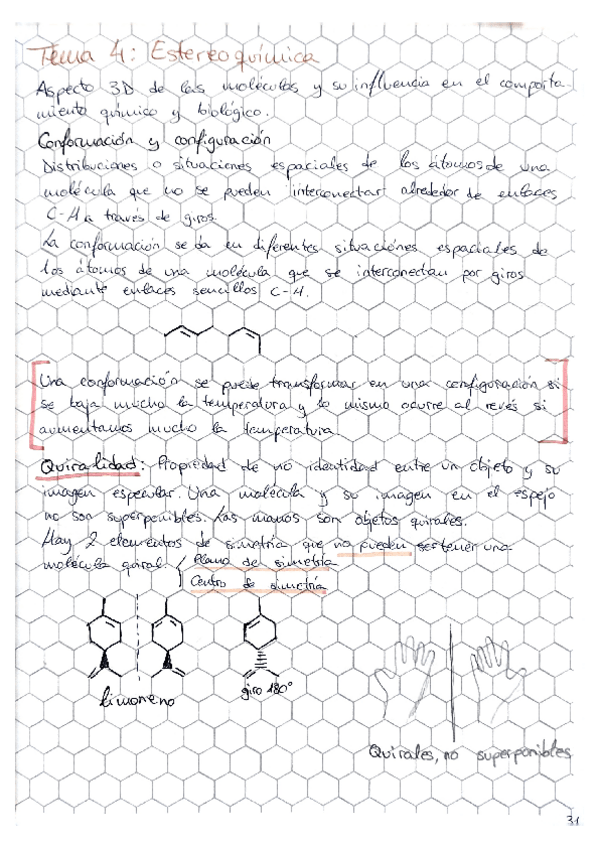 Tema 4: Estereoquímica
Aspecto 3D de las moléculas y su influencia en el comporta-
miento químico y biológico.
Conformación y configuración
Distribuciones o situaciones espaciales de los átomos de una
molécula que no se pueden interconectar alrededor de enlaces
C-H a través de giros.
La conformación se da en diferentes situaciones espaciales de
los átomos de una molécula que se interconectan por giros
mediante enlaces sencillos C-H.
Una conformación se puede transformar en una configuración si
se baja mucho la temperatura y lo mismo ocurre al revés si
aumentamos mucho la temperatura.
Quiralidad: Propiedad de no identidad entre un objeto y su
imagen especular. Una molécula y su imagen en el espejo
no son superponibles. Las manos son objetos quirales.
Hay 2 elementos de simetría que no pueden ser tener una
molécula quiral
Plano de simetría
Centro de simetría
limoneno
giro 180°
Quirales, no superponibles
31